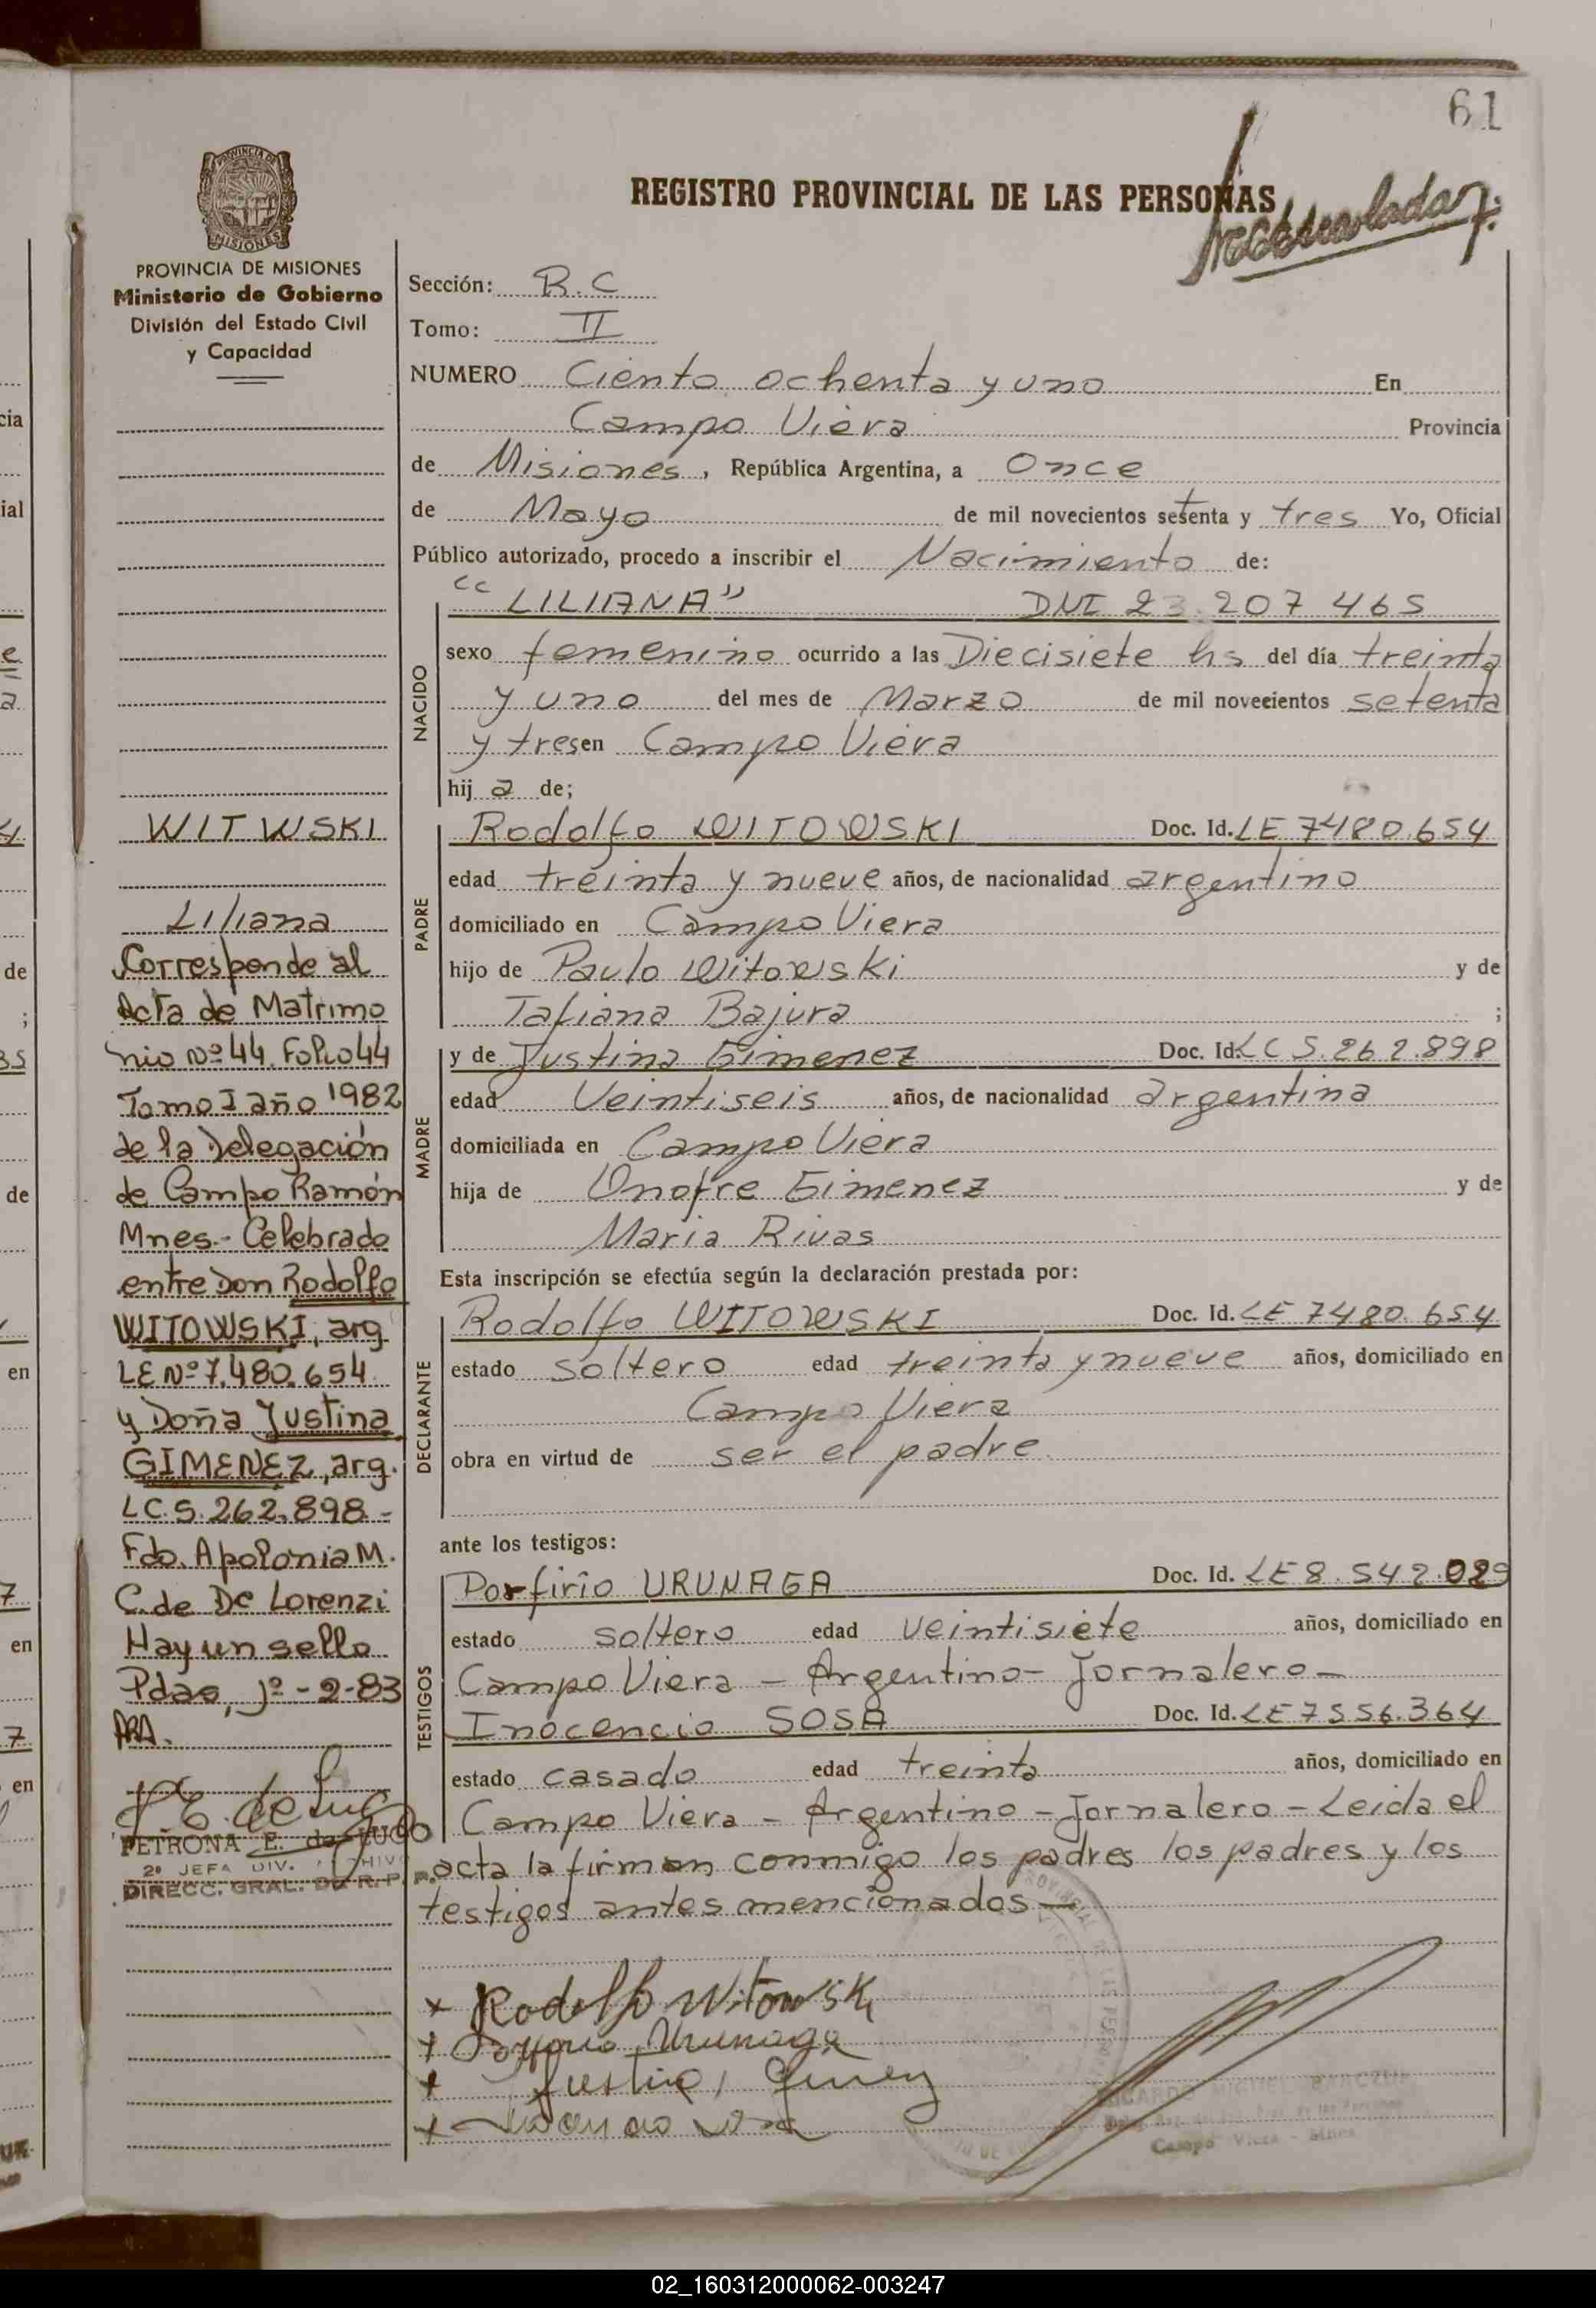 61
REGISTRO PROVINCIAL DE LAS PERSONAS
PROVINCIA DE MISIONES
Ministerio de Gobierno
División del Estado Civil
y Capacidad
WITWSKI
Liliana
Corresponde al
Acta de Matrimo
nio Nº 44. Folio 44
Tomo I año 1982
de la Delegación
de Campo Ramón
Mnes.- Celebrado
entre Don Rodolfo
WITOWSKI, arg
LE Nº 7.480.654
y Doña Justina
GIMENEZ, arg.
LC.5.262.898.-
Fdo. Apolonia M.
C. de De Lorenzi
Hay un sello
Pdas, 1º-2-83
PETRONA E. de LUGO
2º JEFA DIV. ARCHIVO
DIRECC. GRAL. DE R. P. P.
Sección: R.C
Tomo: II
NUMERO Ciento ochenta y uno En
Campo Viera Provincia
de Misiones, República Argentina, a Once
de Mayo de mil novecientos setenta y tres Yo, Oficial
Público autorizado, procedo a inscribir el Nacimiento de:
NACIDO
"LILIANA" DNI 23.207 465
sexo femenino ocurrido a las Diecisiete hs del día treinta
y uno del mes de Marzo de mil novecientos setenta
y tres en Campo Viera
hij a de;
PADRE
Rodolfo WITOWSKI Doc. Id. LE 7480.654
edad treinta y nueve años, de nacionalidad argentino
domiciliado en Campo Viera
hijo de Paulo Witowski y de
Tatiana Bajura ;
MADRE
y de Justina Gimenez Doc. Id. LC 5.262.898
edad Veintiseis años, de nacionalidad argentina
domiciliada en Campo Viera
hija de Onofre Gimenez y de
Maria Rivas
Esta inscripción se efectúa según la declaración prestada por:
DECLARANTE
Rodolfo WITOWSKI Doc. Id. LE 7480.654
estado soltero edad treinta y nueve años, domiciliado en
Campo Viera
obra en virtud de ser el padre
ante los testigos:
TESTIGOS
Porfirio URUNAGA Doc. Id. LE 8.542.029
estado soltero edad veintisiete años, domiciliado en
Campo Viera - Argentino - Jornalero -
Inocencio SOSA Doc. Id. LE 7556.364
estado casado edad treinta años, domiciliado en
Campo Viera - Argentino - Jornalero - Leida el
acta la firman conmigo los padres los padres y los
testigos antes mencionados -
x Rodolfo Witowski
x Porfirio Urunaga
x Justina
x
Campo Viera
02_160312000062-003247